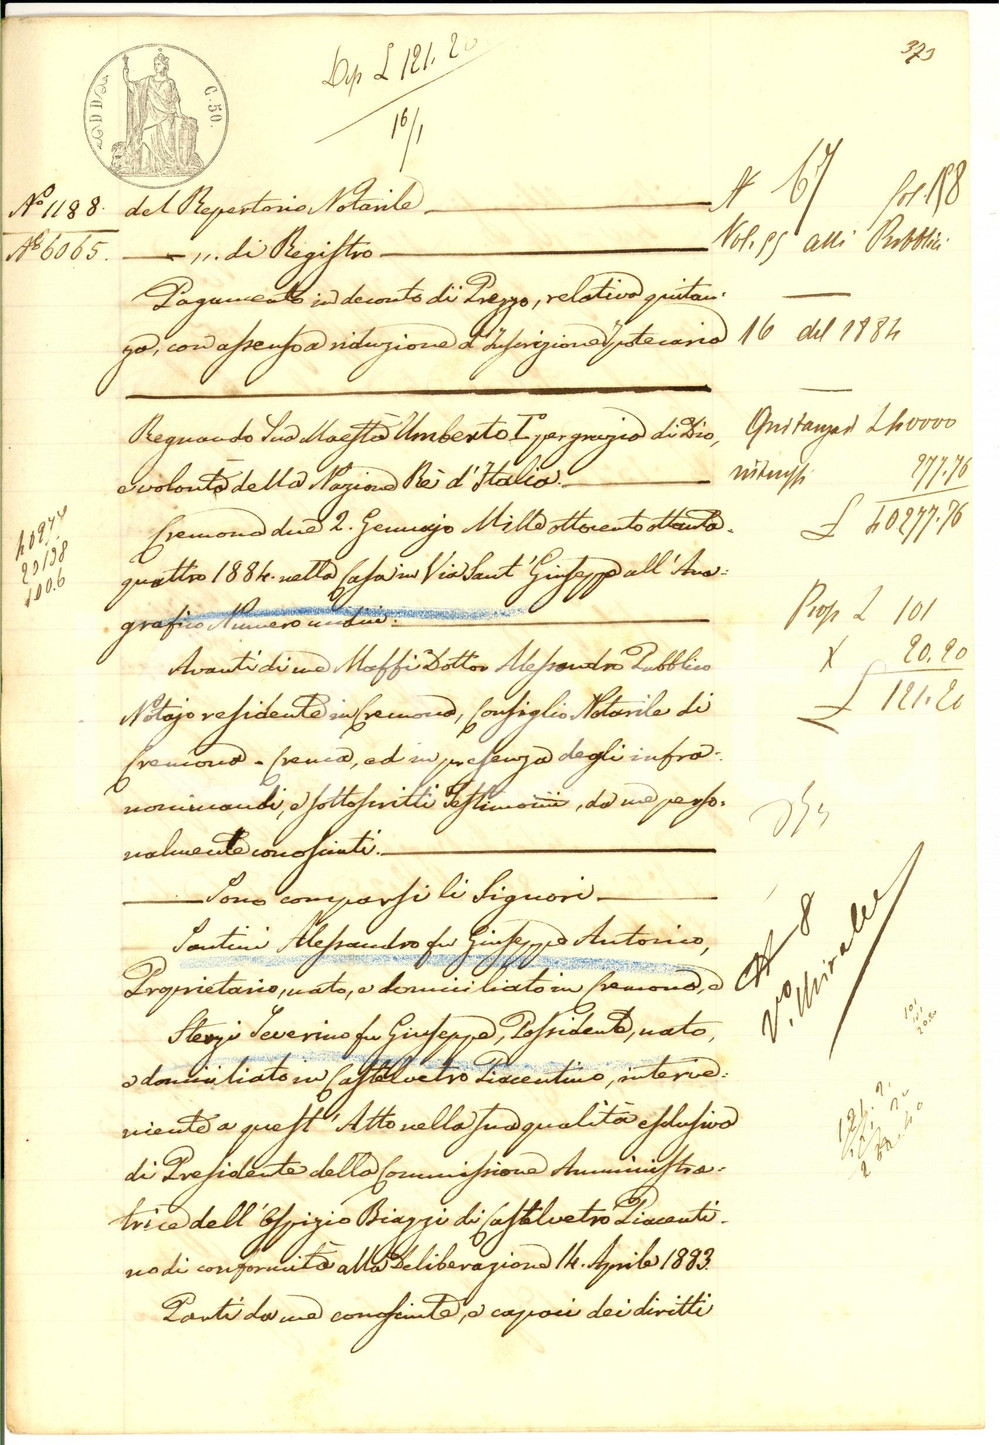 Dep L 121.20
16/1
373
DD
C. 50.
N° 1188. del Repertorio Notarile
N° 6065. di Registro
N 67 fol. 158
Vol. 95 atti Pubblici
16 del 1884
Pagamento in deconto di Prezzo, relativa quitan:
za, con assenso a riduzione d'Inscrizione Ipotecaria
Regnando Sua Maestà Umberto I° per grazia di Dio,
e volontà della Nazione Rè d'Italia.
Cremona due 2. Gennajo Mille ottocento ottanta-
quattro 1884. nella Casa in Via Sant'Giuseppe all'Ana:
grafico Numero undici.
Avanti di me Maffi Dottor Alessandro Pubblico
Notajo residente in Cremona, Consiglio Notarile di
Cremona - Crema, ed in presenza degli infra:
nominandi, e sottoscritti Testimonii, da me perso:
nalmente conosciuti.
Sono comparsi li Signori
Santini Alessandro fu Giuseppe Antonio,
Proprietario, nato, e domiciliato in Cremona, e
Sterzi Severino fu Giuseppe, Possidente, nato,
e domiciliato in Castelvetro Piacentino, interve:
niente a quest'Atto nella sua qualità esclusiva
di Presidente della Commissione Amministra:
trice dell'Ospizio Biazzi di Castelvetro Piacenti-
no di conformità alla Deliberazione 14. Aprile 1883.
Parti da me conosciute, e capaci dei diritti
Quitanza L 40000
277.76
£ 40277.76
Prop L 101
X 20.20
£ 121.20
40277
20138
100.6